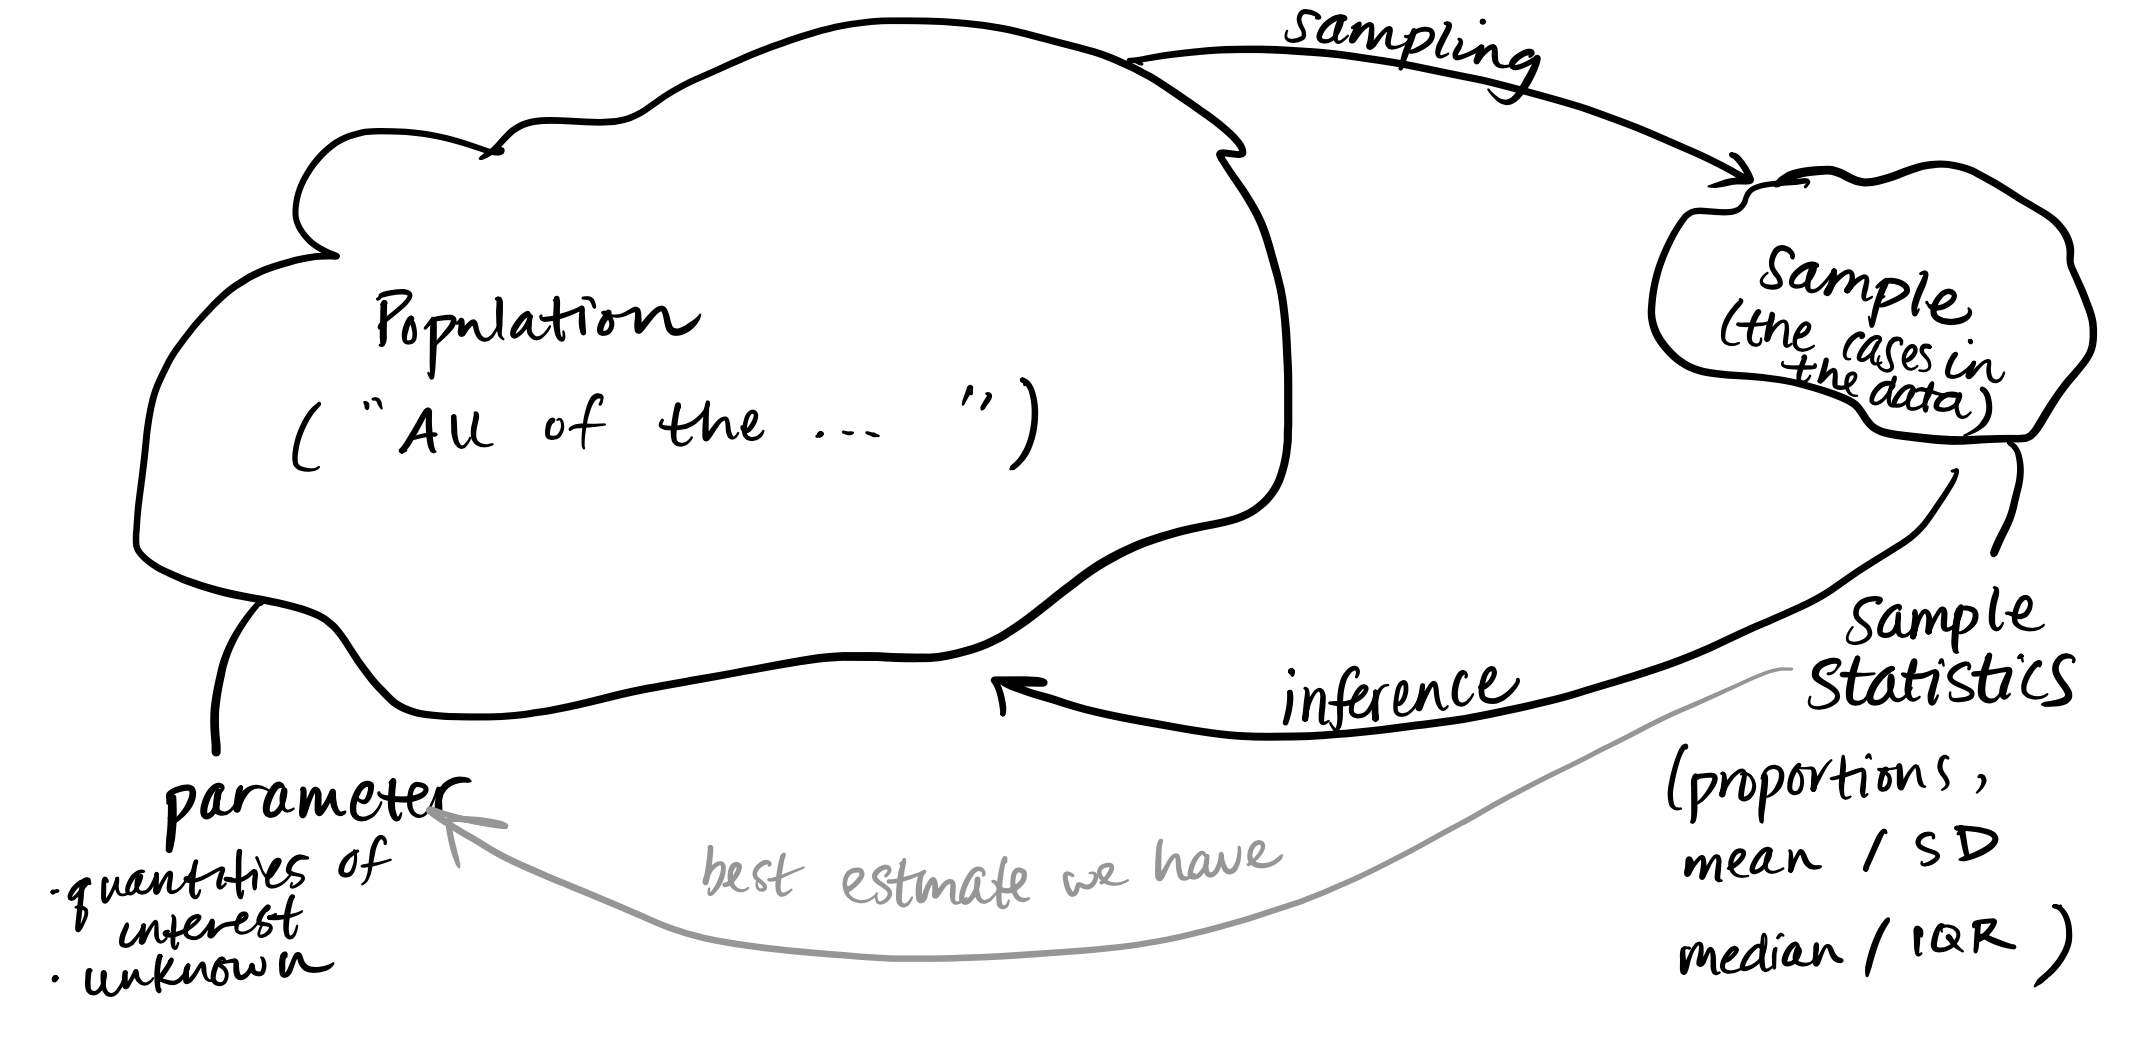 sampling
Population
("All of the ... ")
Sample
(the cases in
the data)
inference
Sample
statistics
(proportions,
mean / SD
median / IQR)
parameter
· quantities of
interest
· unknown
best estimate we have